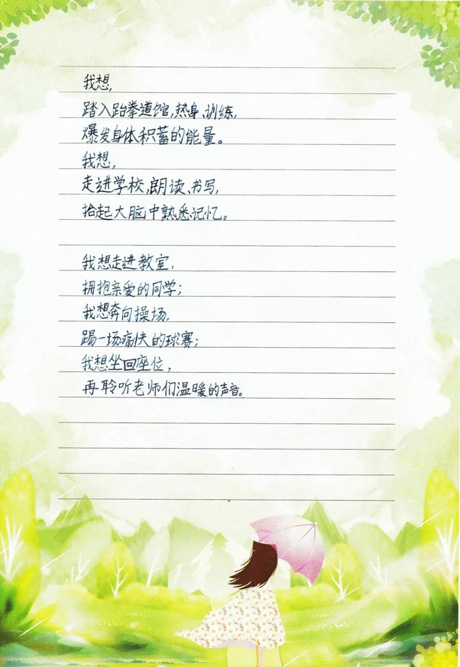 我想,
踏入跆拳道馆,热身、训练,
爆发身体积蓄的能量。
我想,
走进学校,朗读、书写,
拾起大脑中熟悉记忆。
我想走进教室,
拥抱亲爱的同学;
我想奔向操场,
踢一场痛快的球赛;
我想坐回座位,
再聆听老师们温暖的声音。